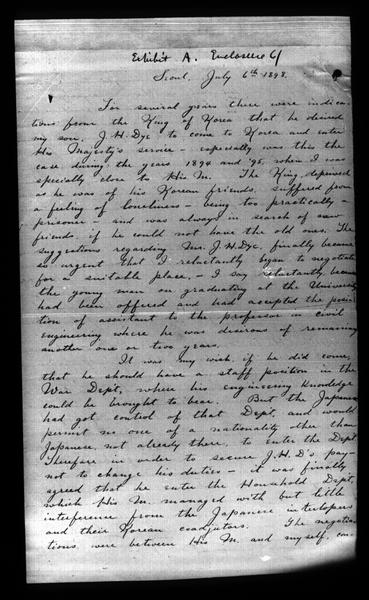 Exhibit A. Enclosure 6/
Seoul, July 6th 1898.
For several years there were indica-
tions from the King of Korea that he desired
my son, J. H. Dye to come to Korea and enter
His Majesty's service - especially was this the
case during the years 1894 and '95, when I was
specially close to His M. The King, depressed
as he was of his Korean friends, suffered from
a feeling of loneliness - being too practically a
prisoner - and was always in search of new
friends, if he could not have the old ones. The
suggestions regarding Mr. J. H. Dye, finally became
so urgent that I reluctantly began to negotiate
for a suitable place, - I say reluctantly, because
the young man on graduating at the University
had been offered and had accepted the posi-
tion of assistant to the professor in civil
Engineering where he was desirous of remaining
another one or two years.
It was my wish, if he did come,
that he should have a staff position in the
War Dept, where his engineering knowledge
could be brought to bear. But the Japanese
had got control of that Dept, and would
permit no one of a nationality other than
Japanese, not already there, to enter the Dept.
Therefore in order to secure J. H. D's pay -
not to change his duties - it was finally
agreed that he enter the Household Dept,
which His M. managed with but little
interference from the Japanese interlopers
and their Korean coadjutors. The negotia-
tions were between His M. and myself, con-